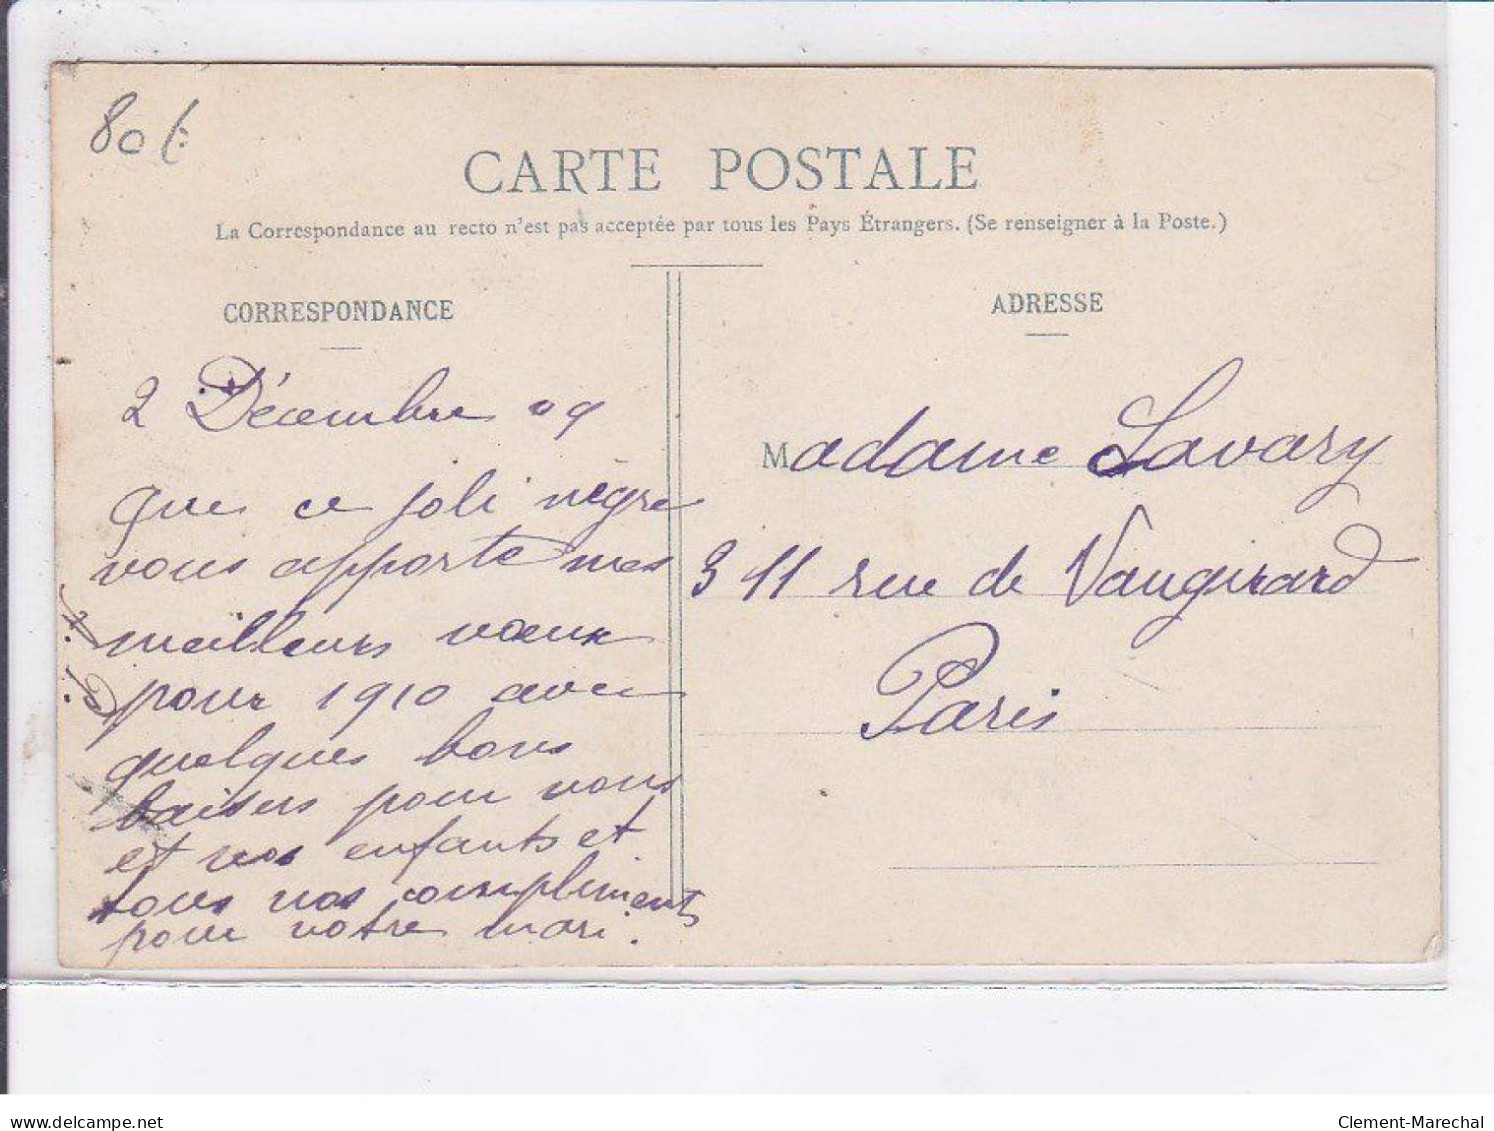 80 €
CARTE POSTALE
La Correspondance au recto n'est pas acceptée par tous les Pays Étrangers. (Se renseigner à la Poste.)
CORRESPONDANCE
2 Décembre 09
que ce joli nègre
vous apporte mes
meilleurs vœux
pour 1910 avec
quelques bons
baisers pour vous
et vos enfants et
tous nos compliments
pour votre mari.
ADRESSE
Madame Lavary
311 rue de Vaugirard
Paris
delcampe.net
Clement-Marechal